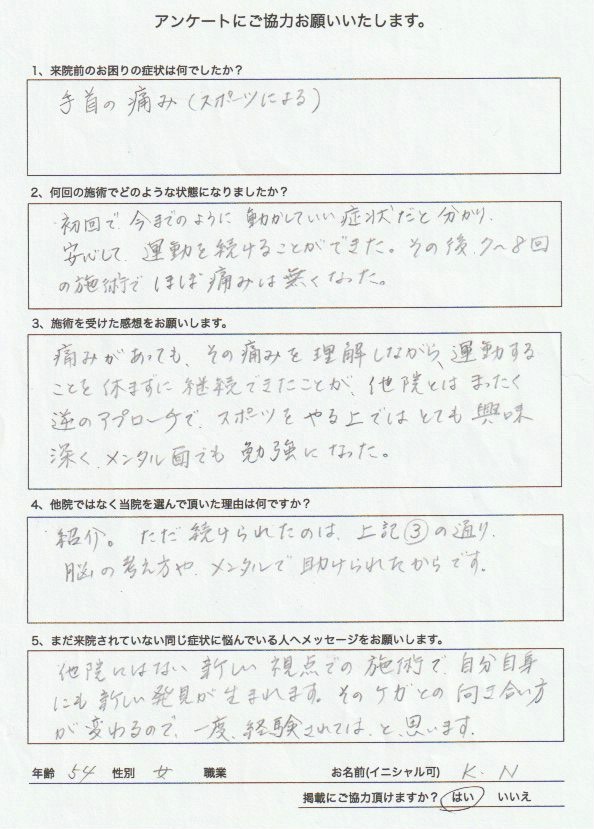 アンケートにご協力お願いいたします。
1、来院前のお困りの症状は何でしたか?
手首の痛み(スポーツによる)
2、何回の施術でどのような状態になりましたか?
初回で、今までのように動かしていい症状だと分かり、
安心して、運動を続けることができた。その後、7〜8回
の施術でほぼ痛みは無くなった。
3、施術を受けた感想をお願いします。
痛みがあっても、その痛みを理解しながら、運動する
ことを休まずに継続できたことが、他院とはまったく
逆のアプローチで、スポーツをやる上ではとても興味
深く、メンタル面でも勉強になった。
4、他院ではなく当院を選んで頂いた理由は何ですか?
紹介。ただ続けられたのは、上記③の通り、
脳の考え方や、メンタルで助けられたからです。
5、まだ来院されていない同じ症状に悩んでいる人へメッセージをお願いします。
他院にはない新しい視点での施術で、自分自身
にも新しい発見が生まれます。そのケガとの向き合い方
が変わるので、一度、経験されては、と、思います。
年齢 54 性別 女 職業 お名前(イニシャル可) K. N
掲載にご協力頂けますか? はい いいえ